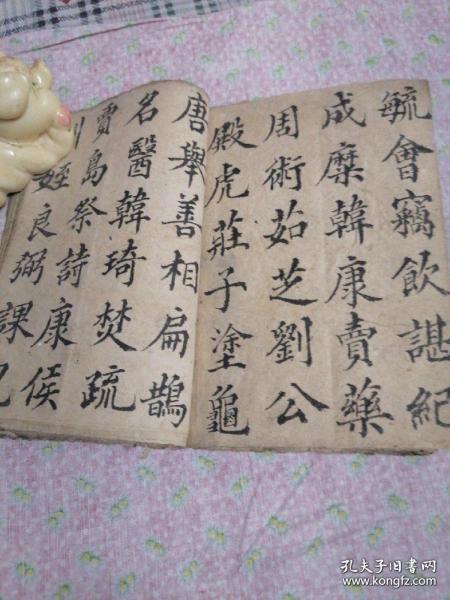 毓會竊飲諶紀
成糜韓康賣藥
周術茹芝劉公
殿虎莊子塗龜
唐舉善相扁鵲
名醫韓琦焚疏
賈島祭詩康侯
姪良弼課
孔夫子旧书网
www.kongfz.com